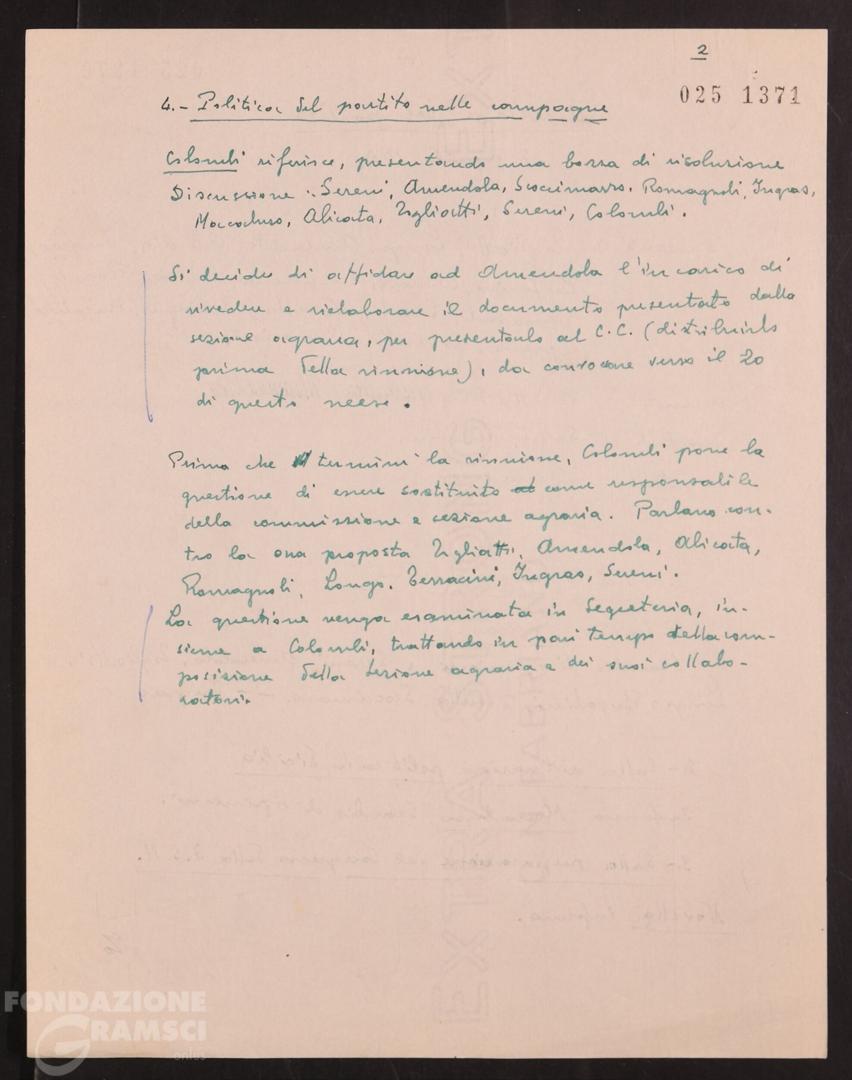 2
025 1371
4.- Politica del partito nelle campagne
Colombi riferisce, presentando una bozza di risoluzione
Discussione: Sereni, Amendola, Scoccimarro, Romagnoli, Ingrao,
Macaluso, Alicata, Togliatti, Sereni, Colombi.
Si decide di affidare ad Amendola l'incarico di
rivedere e rielaborare il documento presentato dalla
sezione agraria, per presentarlo al C.C. (distribuirlo
prima della riunione), da convocare verso il 20
di questo mese.
Prima che termini la riunione, Colombi pone la
questione di essere sostituito come responsabile
della commissione e sezione agraria. Parlano con-
tro la sua proposta Togliatti, Amendola, Alicata,
Romagnoli, Longo, Terracini, Ingrao, Sereni.
La questione venga esaminata in Segreteria, in-
sieme a Colombi, trattando in pari tempo della com-
posizione della sezione agraria e dei suoi collabo-
ratori.
FONDAZIONE
GRAMSCI
onlus